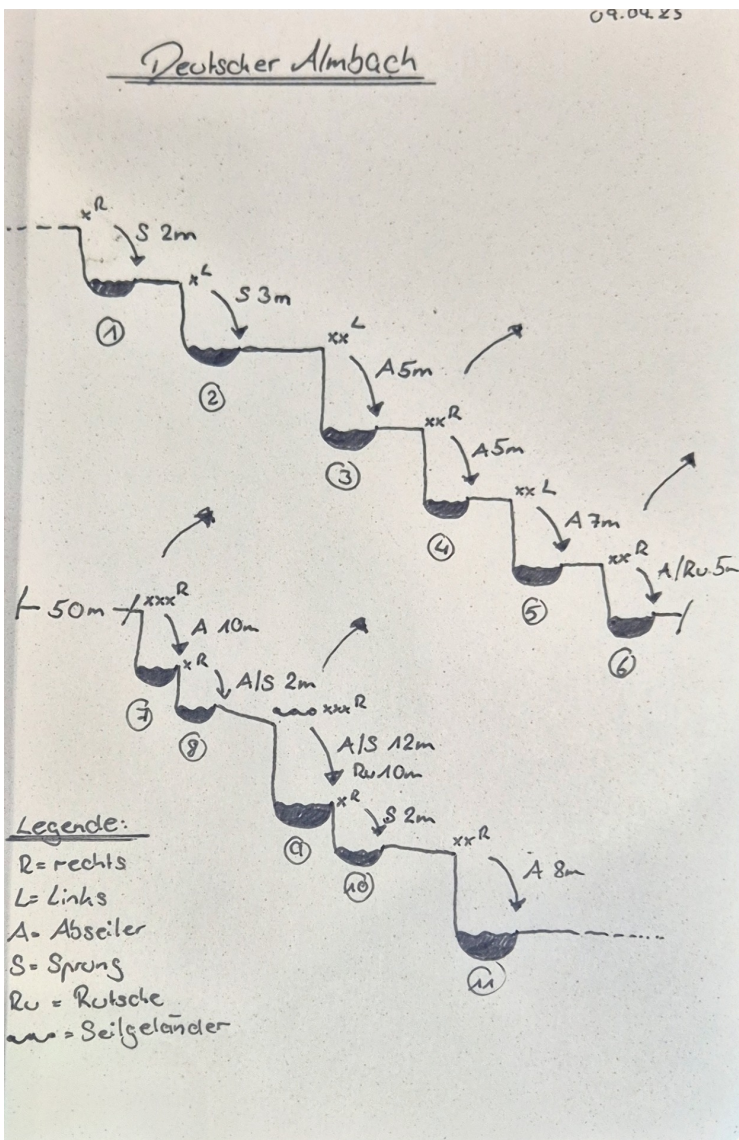 09.04.25
Deutscher Almbach
x R
S 2m
x L
S 3m
1
xx L
A 5m
2
xx R
A 5m
3
xx L
A 7m
4
xx R
A/Ru 5m
5
6
50m
xxx R
A 10m
x R
A/S 2m
7
xxx R
8
A/S 12m
Ru 10m
x R
S 2m
9
xx R
10
A 8m
11
Legende:
R = rechts
L = Links
A = Abseiler
S = Sprung
Ru = Rutsche
= Seilgeländer